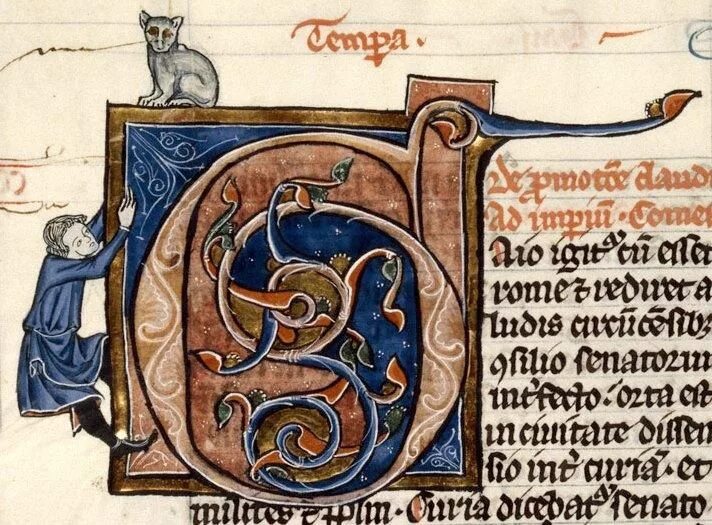 Temꝑa.
De ꝓmotōe claud
Ad imꝑiū. Comes
GAio igit᷑ cū esset
rome ⁊ rediret a
ludis
ꝯsilio senatoru
int̄fecto. orta est
in ciuitate dissen
sio int̄ curiā. et
milites ⁊ ppl̄m. Curia dicebat᷑ senato